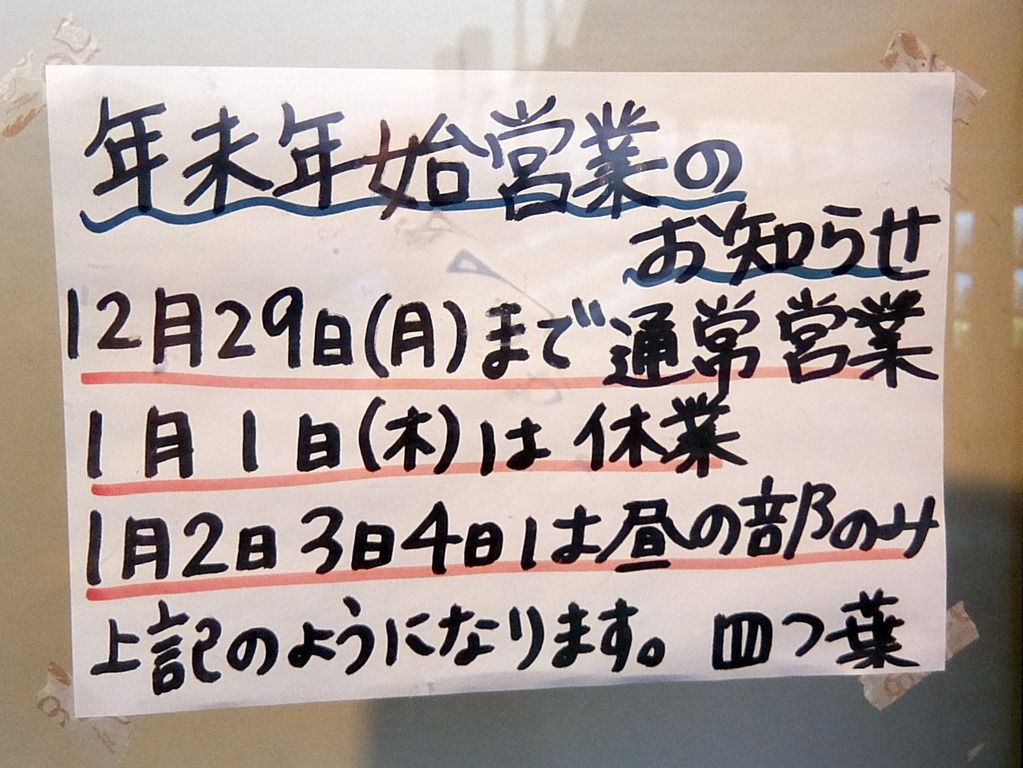 年末年始営業の
お知らせ
12月29日(月)まで通常営業
1月1日(木)は休業
1月2日3日4日は昼の部のみ
上記のようになります。 四つ葉